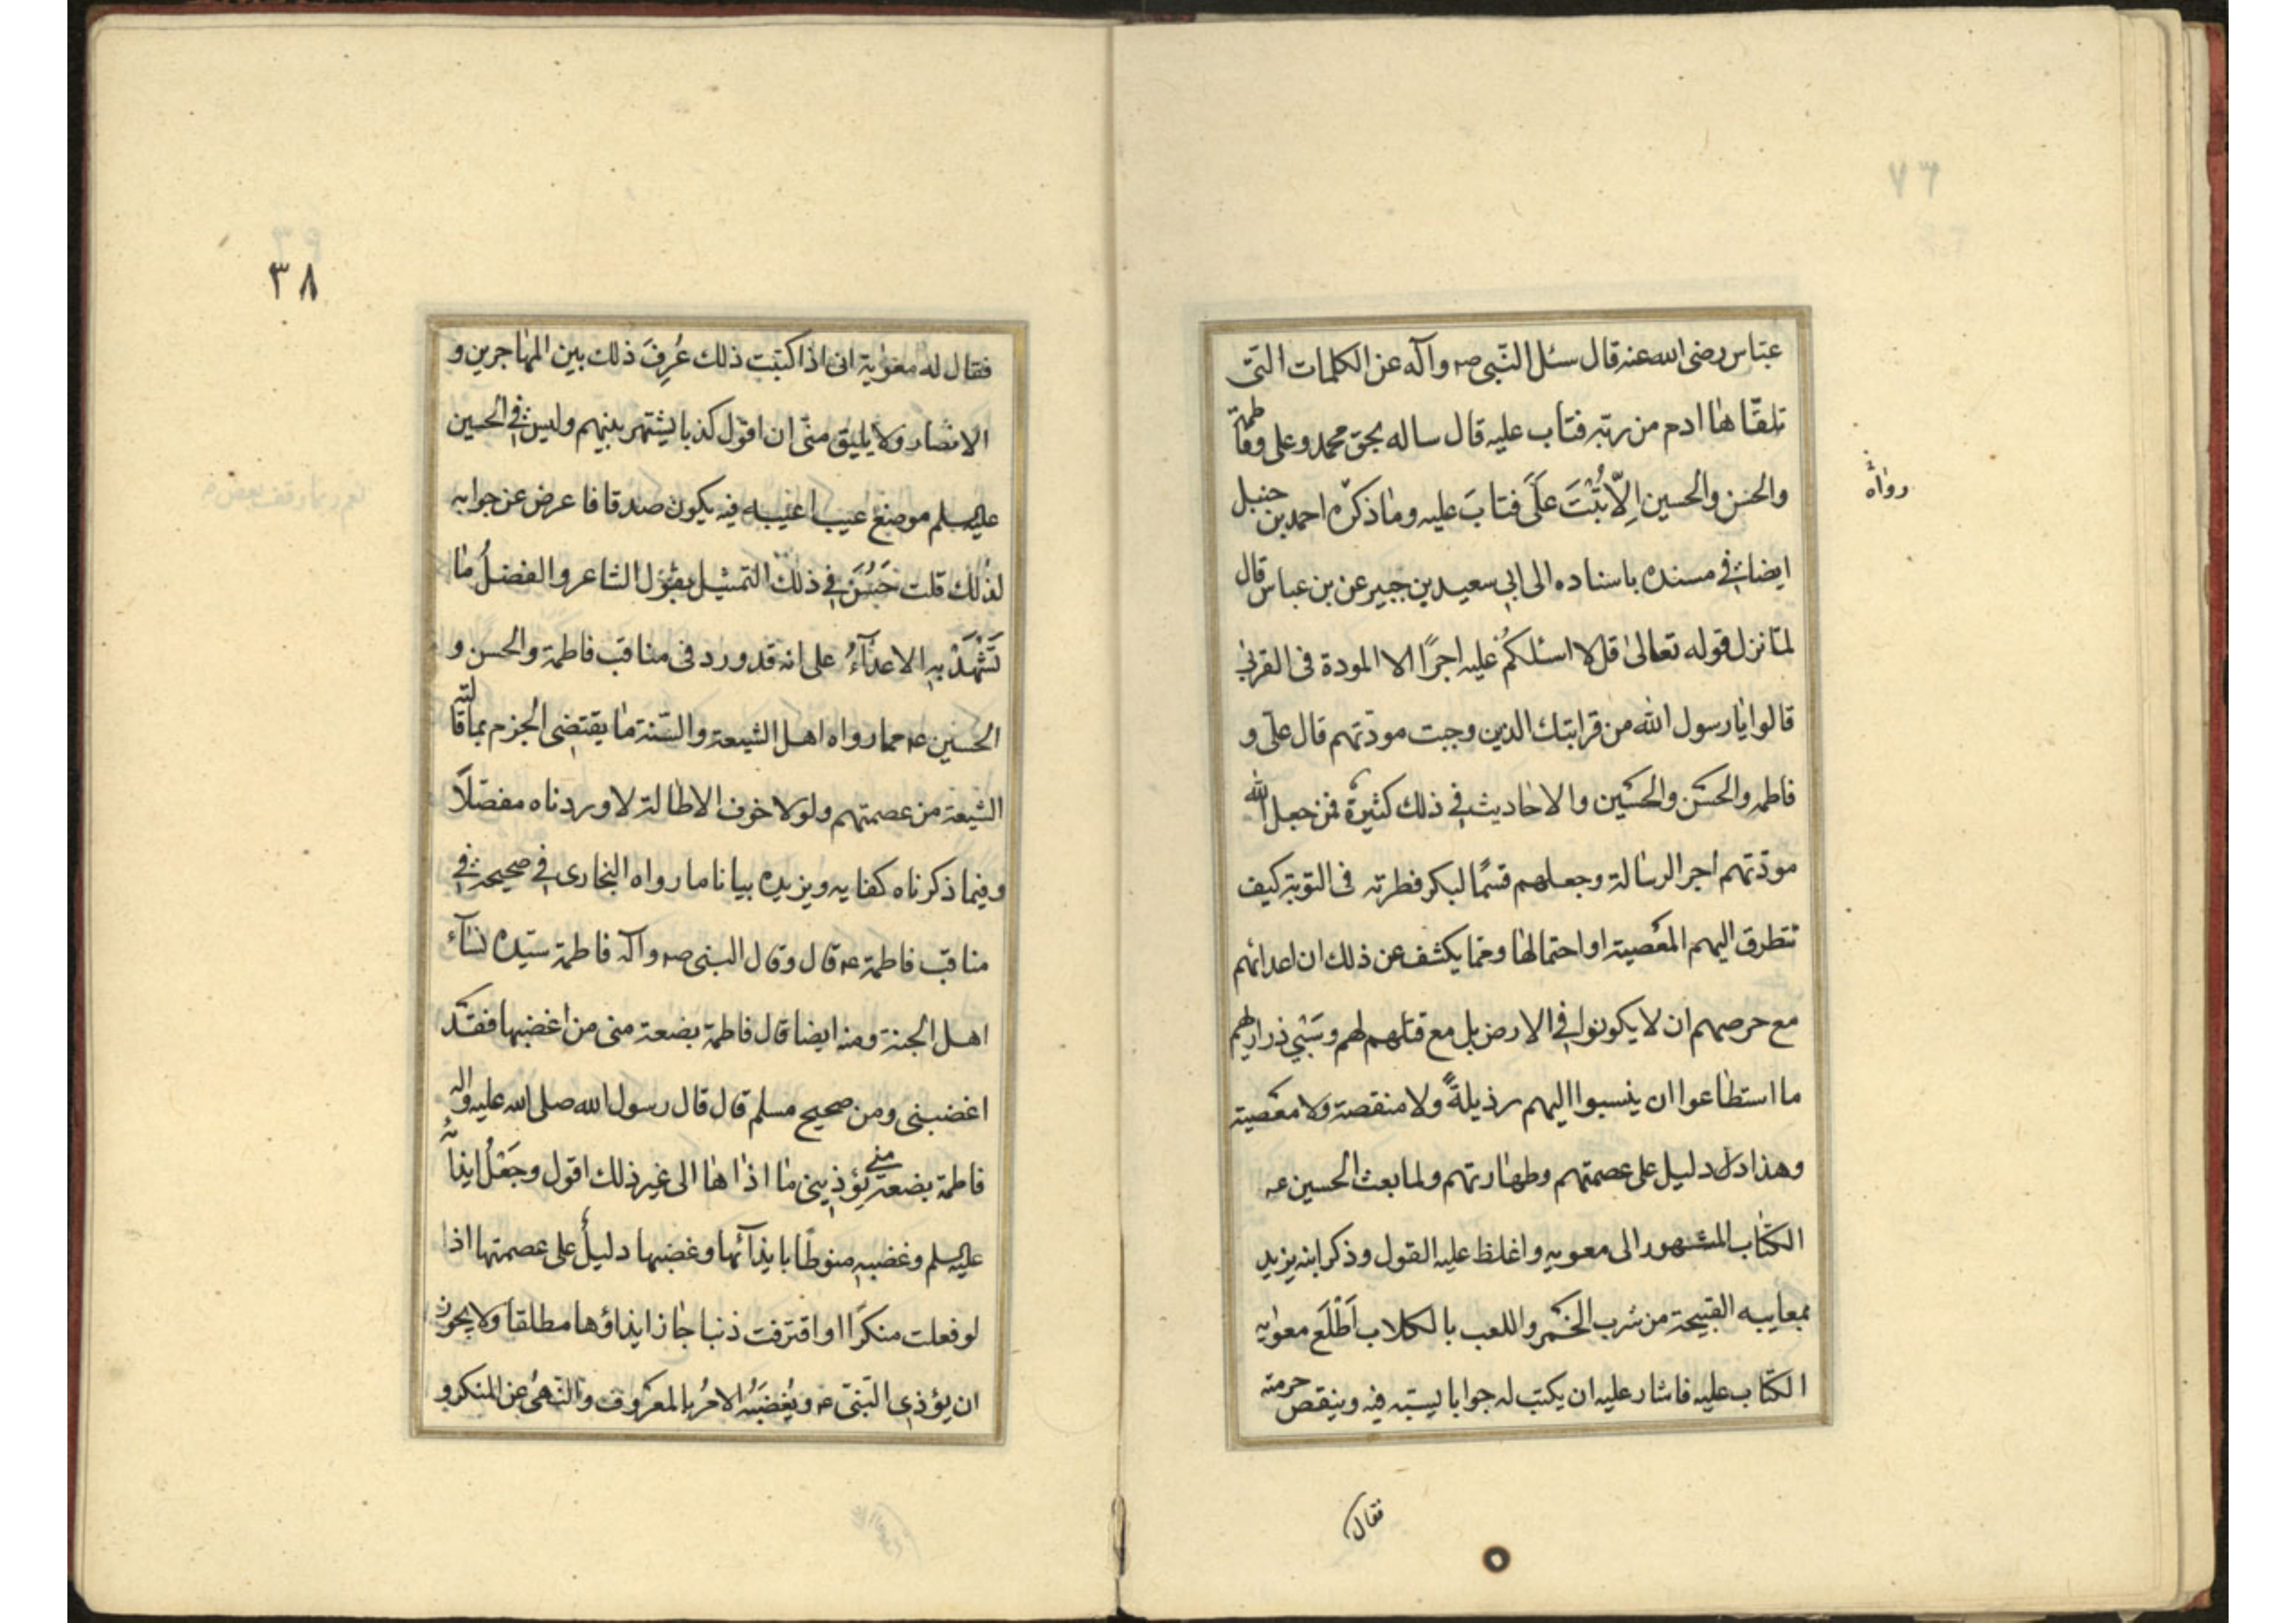 عباس رضی الله عنه قال سئل النّبی صم وآله عن الکلمات التی
تلقّاها ادم من ربّه فتاب علیه قال ساله بحق محمد وعلی وفاطمة
والحسن والحسین اِلّا تُبْتَ عَلَیَّ فتابَ علیه وما ذکره احمد بن حنبل
رواه
ایضا فی مسنده باسناده الی ابی سعید بن جبیر عن بن عباس قال
لمّا نزل قوله تعالی قل لا اسئلکُم علیه اجرًا الا المودة فی القربی
قالوا یا رسول الله من قرابتک الذین وجبت مودّتهم قال علی و
فاطمه والحسَن والحسَین والاحادیث فی ذلک کثیرة فمن جعل الله
مودّتهم اجر الرسالة وجعلهم قسمًا لبکر فطرته فی التوبة کیف
تتطرق الیهم المعصیة او احتمالها ومما یکشف عن ذلک ان اعدائهم
مع حرصهم ان لا یکونوا فی الارض بل مع قتلهم لهم وسَبْیِ ذراریهم
ما استطاعوا ان ینسبوا الیهم رذیلةً ولا منقصة ولا معصیة
وهذا ادل دلیل علی عصمتهم وطهارتهم ولما بعث الحسین عه
الکتاب المشهور الی معویه واغلظ علیه القول وذکر ابنه یزید
بمعایبه القبیحة من شرب الخمر واللعب بالکلاب اَطْلَع معویه
الکتاب علیه فاشار علیه ان یکتب له جوابا یسبّه فیه وینقص حرمته
فقال
٣٨
فقال له معویة انی اذا کتبت ذلک عُرِفَ ذلک بین المهاجرین و
الانصار ولا یلیق منّی ان اقول کذبا یشتهر بینهم ولیس فی الحسین
علیه السلم موضع عیب اعیبه فیه یکون صدقا فاعرض عن جوابه
لذلک قلت حَسُنَ فی ذلک التمثیل بقول الشاعر والفضلُ ما
تَشْهَدْ بِهِ الاعدآءُ علی انه قد ورد فی مناقب فاطمة والحسن و
الحسین عم مما رواه اهل الشیعة والسّنة ما یقتضی الجزم بما قالته
الشیعة من عصمتهم ولولا خوف الاطالة لاوردناه مفصّلًا
وفیما ذکرناه کفایه ویزیده بیانا ما رواه البخاری فی صحیحه فی
مناقب فاطمة عه قال وقال النبی صم وآله فاطمة سیّدة نسآء
اهل الجنة ومنه ایضا قال فاطمة بضعة منی من اغضبها فقَد
اغضبنی ومن صحیح مسلم قال قال رسول الله صلی الله علیه واله
فاطمة بضعة منی یؤذینی ما اذاها الی غیر ذلک اقول وجَعْلُ ایذائه
علیه السلم وغضبِهِ منوطًا بایذآئها وغضبها دلیلٌ علی عصمتها اذ
لو فعلت منکرًا او اقترفت ذنبا جاز ایذاؤها مطلقا ولا یجوز
ان یؤذی النّبی عه ویُغضِبَهُ الامرُ بالمعروف والنّهیُ عن المنکر و